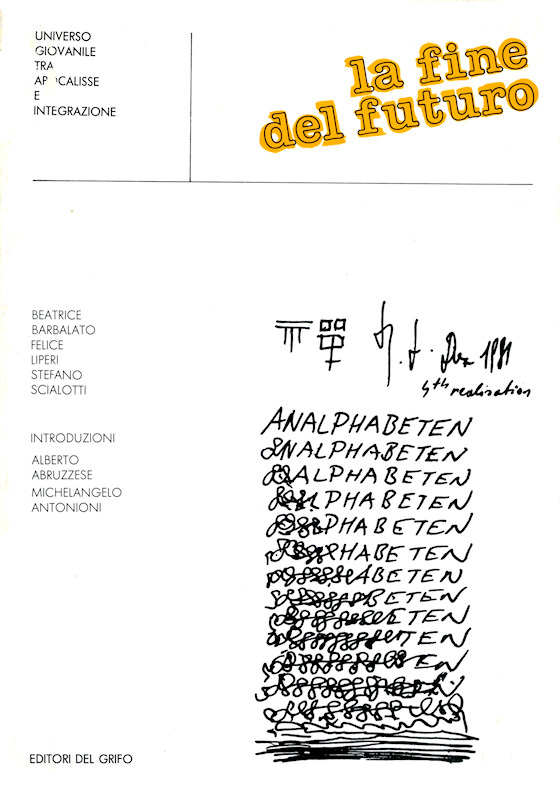 UNIVERSO
GIOVANILE
TRA
APOCALISSE
E
INTEGRAZIONE
la fine
del futuro
BEATRICE
BARBALATO
FELICE
LIPERI
STEFANO
SCIALOTTI
INTRODUZIONI
ALBERTO
ABRUZZESE
MICHELANGELO
ANTONIONI
1981
4th realisation
ANALPHABETEN
NALPHABETEN
ALPHABETEN
ALPHABETEN
PHABETEN
HABETEN
ABETEN
BETEN
ETEN
TEN
EN
N
EDITORI DEL GRIFO